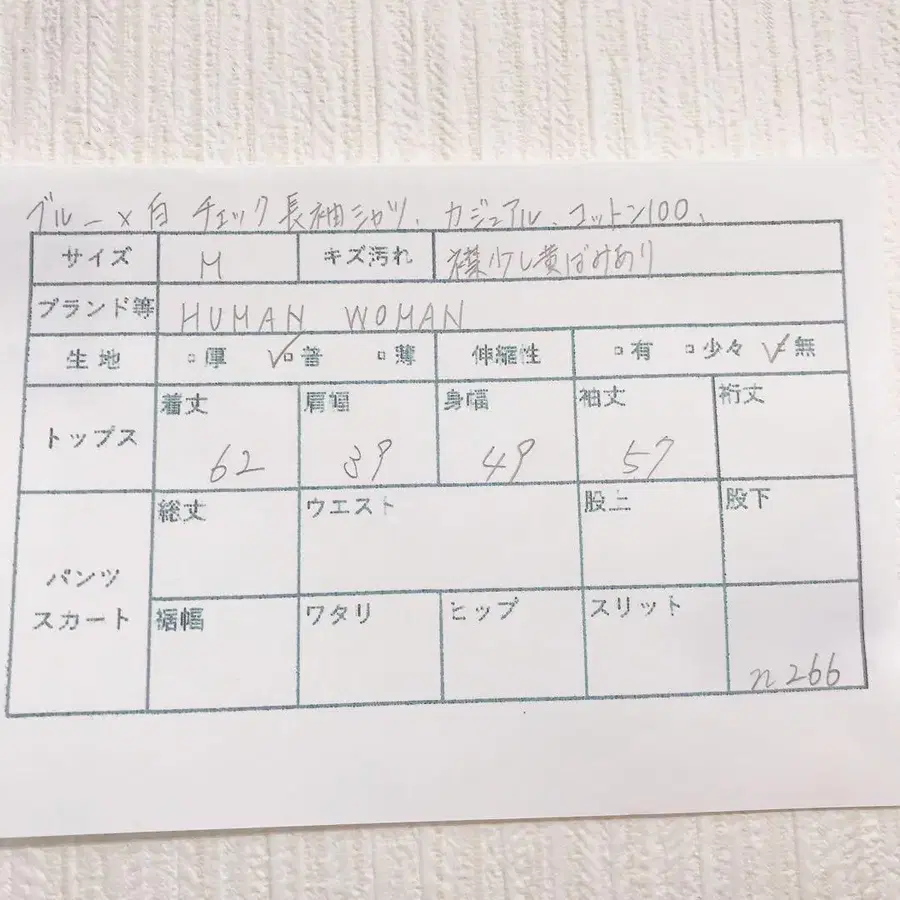 ブルー×白 チェック長袖シャツ、カジュアル、コットン100、
サイズ M キズ汚れ 襟少し黄ばみあり
ブランド等 HUMAN WOMAN
生地 □厚 ☑普 □薄 伸縮性 □有 □少々 ☑無
トップス 着丈 肩幅 身幅 袖丈 裄丈
62 39 49 57
パンツ スカート
総丈 ウエスト 股上 股下
裾幅 ワタリ ヒップ スリット
n266